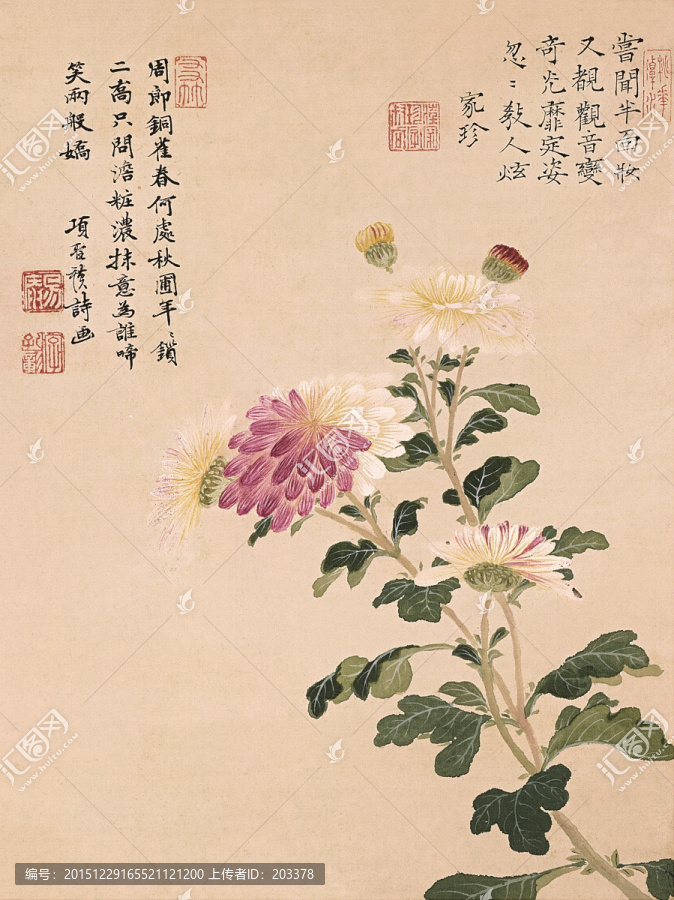 嘗聞半面妝
又覩觀音變
奇光靡定姿
忽〻教人炫
家珍
周郎銅雀春何處秋圃年〻鎖
二喬只問澹粧濃抹意為誰啼
笑兩般嬌
項聖謨詩画
汇图网
www.huitu.com
编号：20151229165521121200 上传者ID：203378